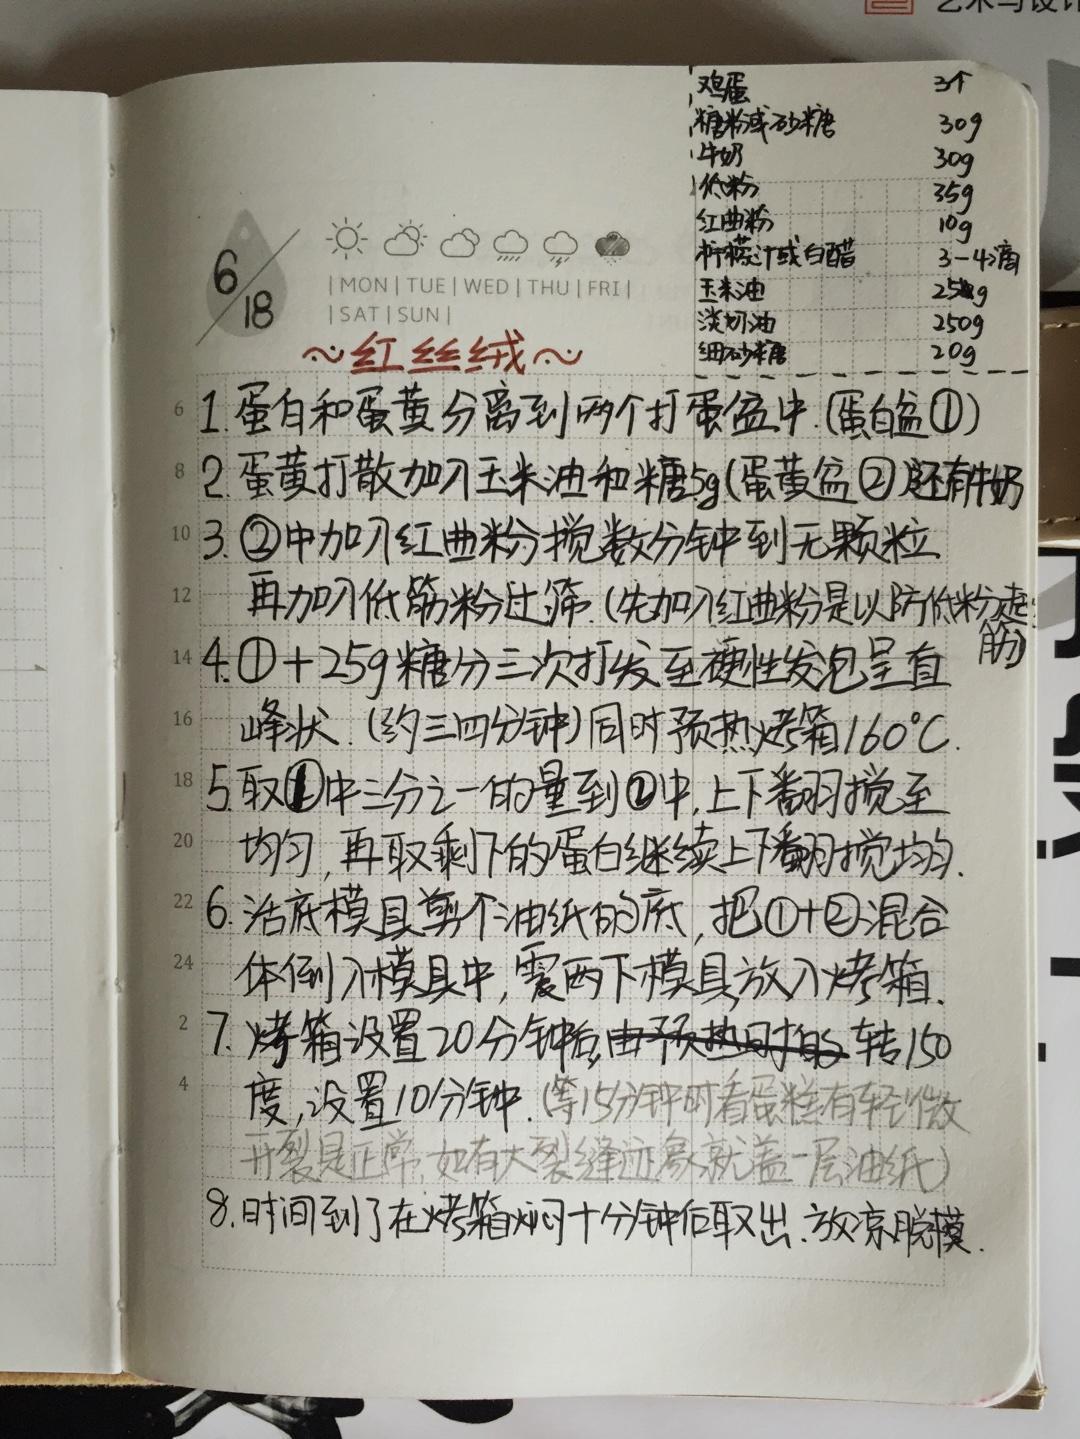 艺术与设计
鸡蛋 3个
糖粉或砂糖 30g
牛奶 30g
低粉 35g
红曲粉 10g
柠檬汁或白醋 3-4滴
玉米油 25g
淡奶油 250g
细砂糖 20g
6/18
|MON|TUE|WED|THU|FRI|
|SAT|SUN|
~红丝绒~
6 1.蛋白和蛋黄分离到两个打蛋盆中.(蛋白盆①)
8 2.蛋黄打散加入玉米油和糖5g(蛋黄盆②)还有牛奶
10 3.②中加入红曲粉搅数分钟到无颗粒
12 再加入低筋粉过筛.(先加入红曲粉是以防低粉起
筋)
14 4.①+25g糖分三次打发至硬性发泡呈直
16 峰状.(约三四分钟)同时预热烤箱160°C.
18 5.取①中三分之一的量到②中,上下翻搅至
20 均匀,再取剩下的蛋白继续上下翻搅均匀.
22 6.活底模具剪个油纸的底,把①+②混合
24 体倒入模具中,震两下模具放入烤箱.
2 7.烤箱设置20分钟后,由预热时的转150
4 度,设置10分钟.(等15分钟时看蛋糕有轻微
开裂是正常,如有大裂缝迹象就盖一层油纸)
8.时间到了在烤箱焖十分钟后取出.放凉脱模.